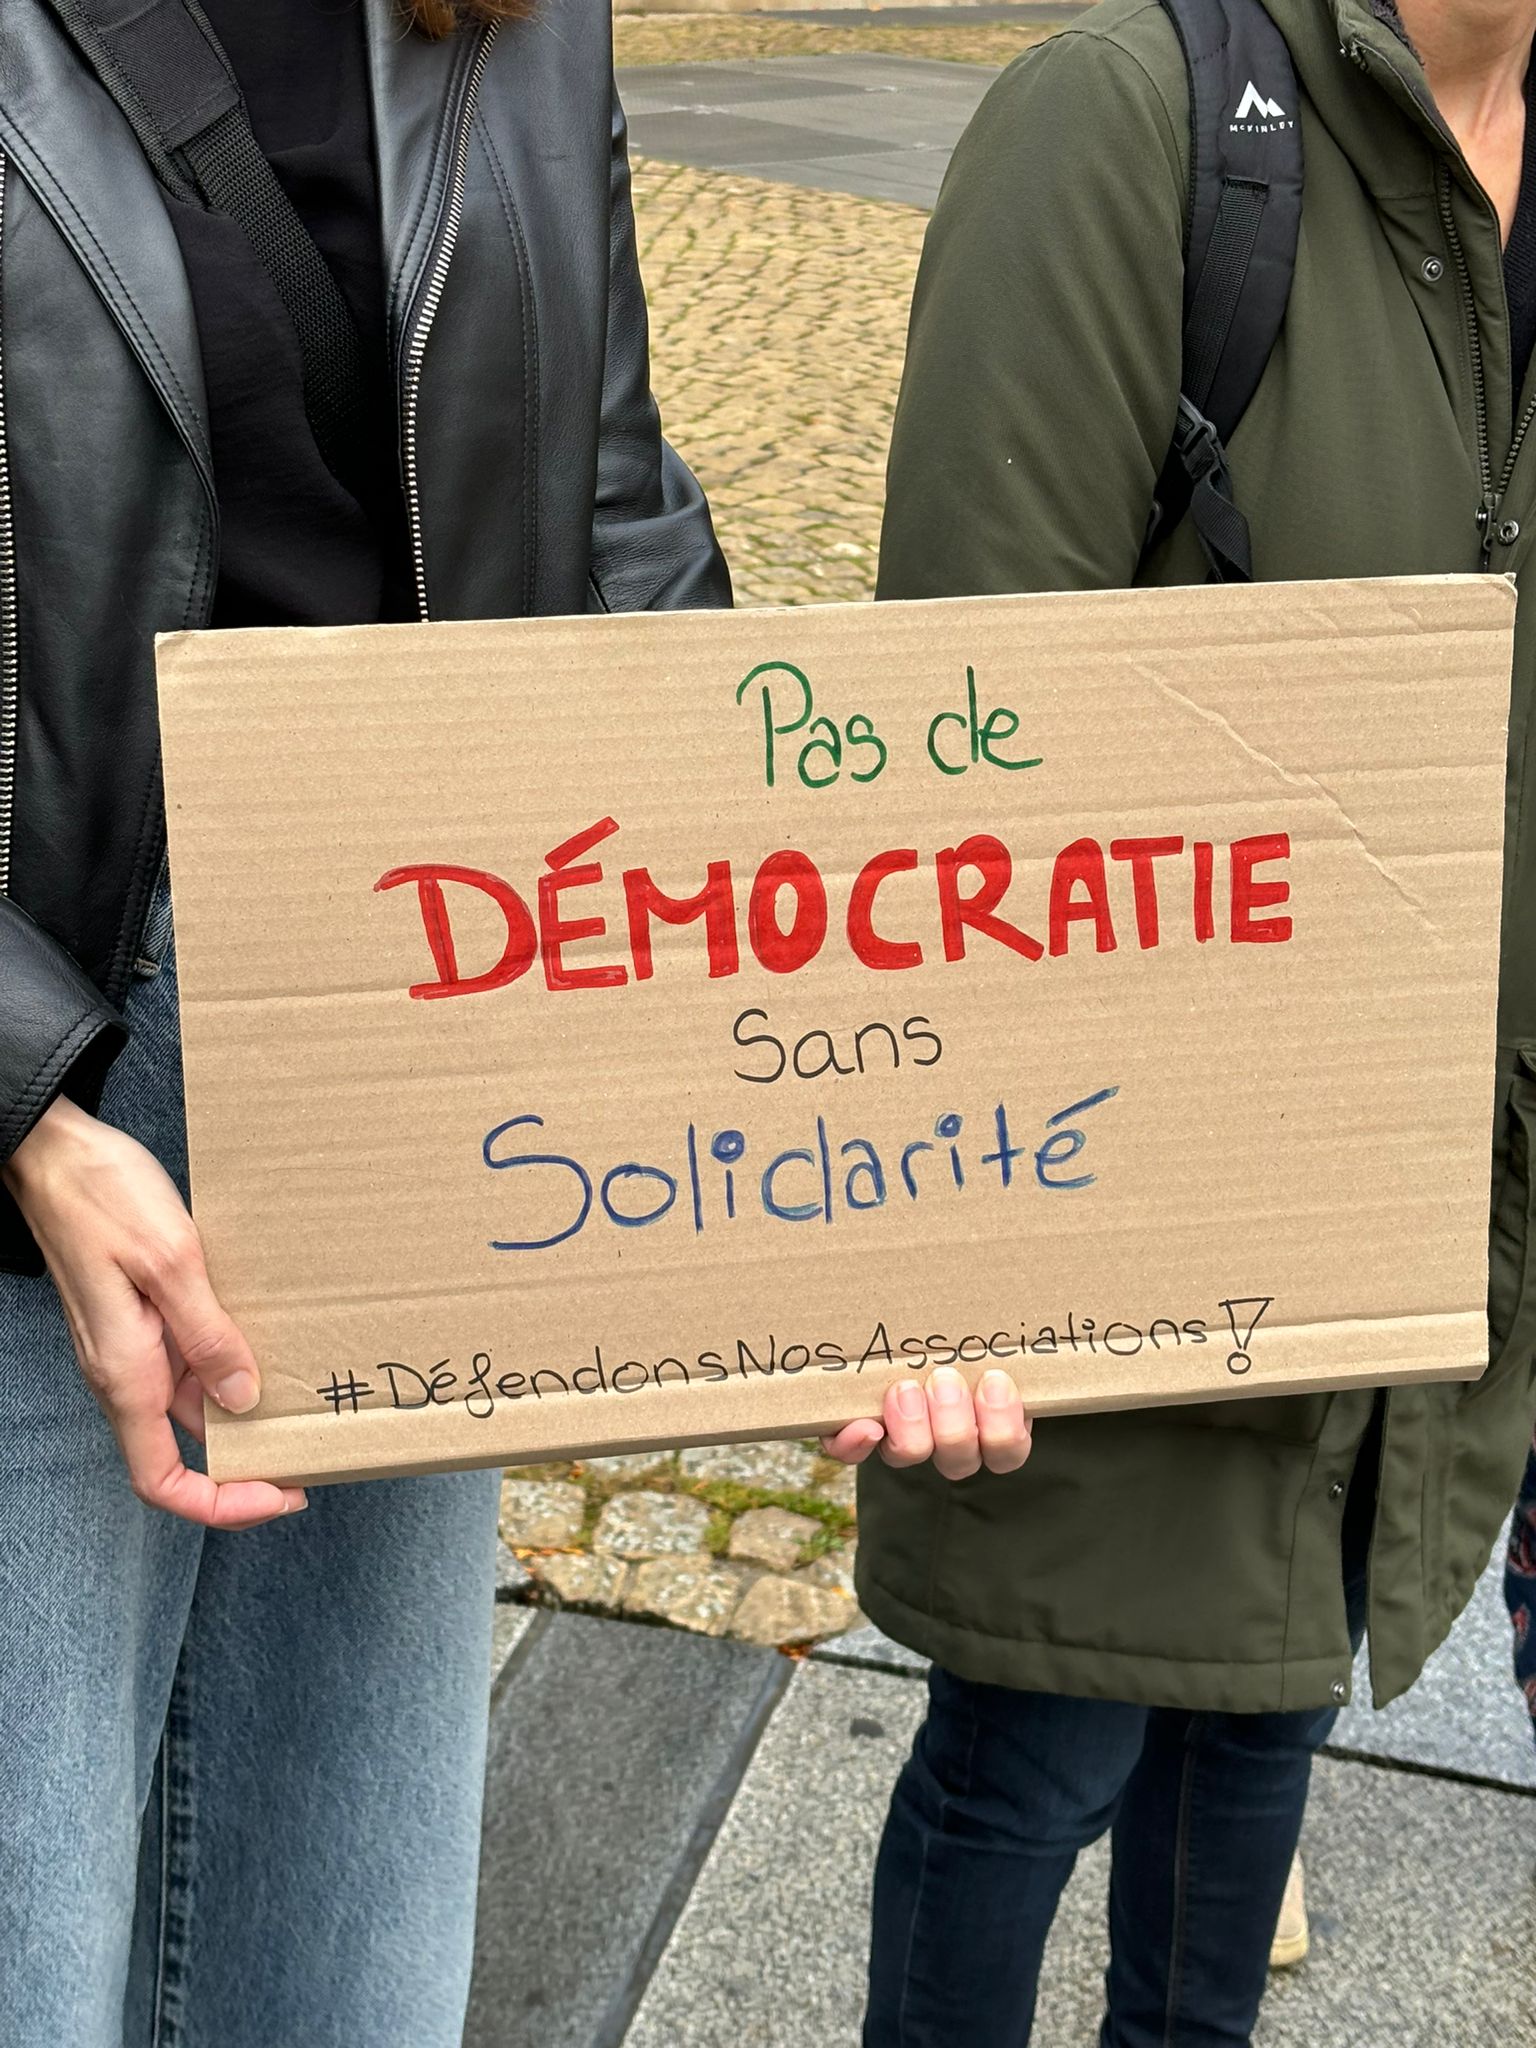 McKINLEY
Pas de
DÉMOCRATIE
Sans
Solidarité
#DéfendonsNosAssociations!